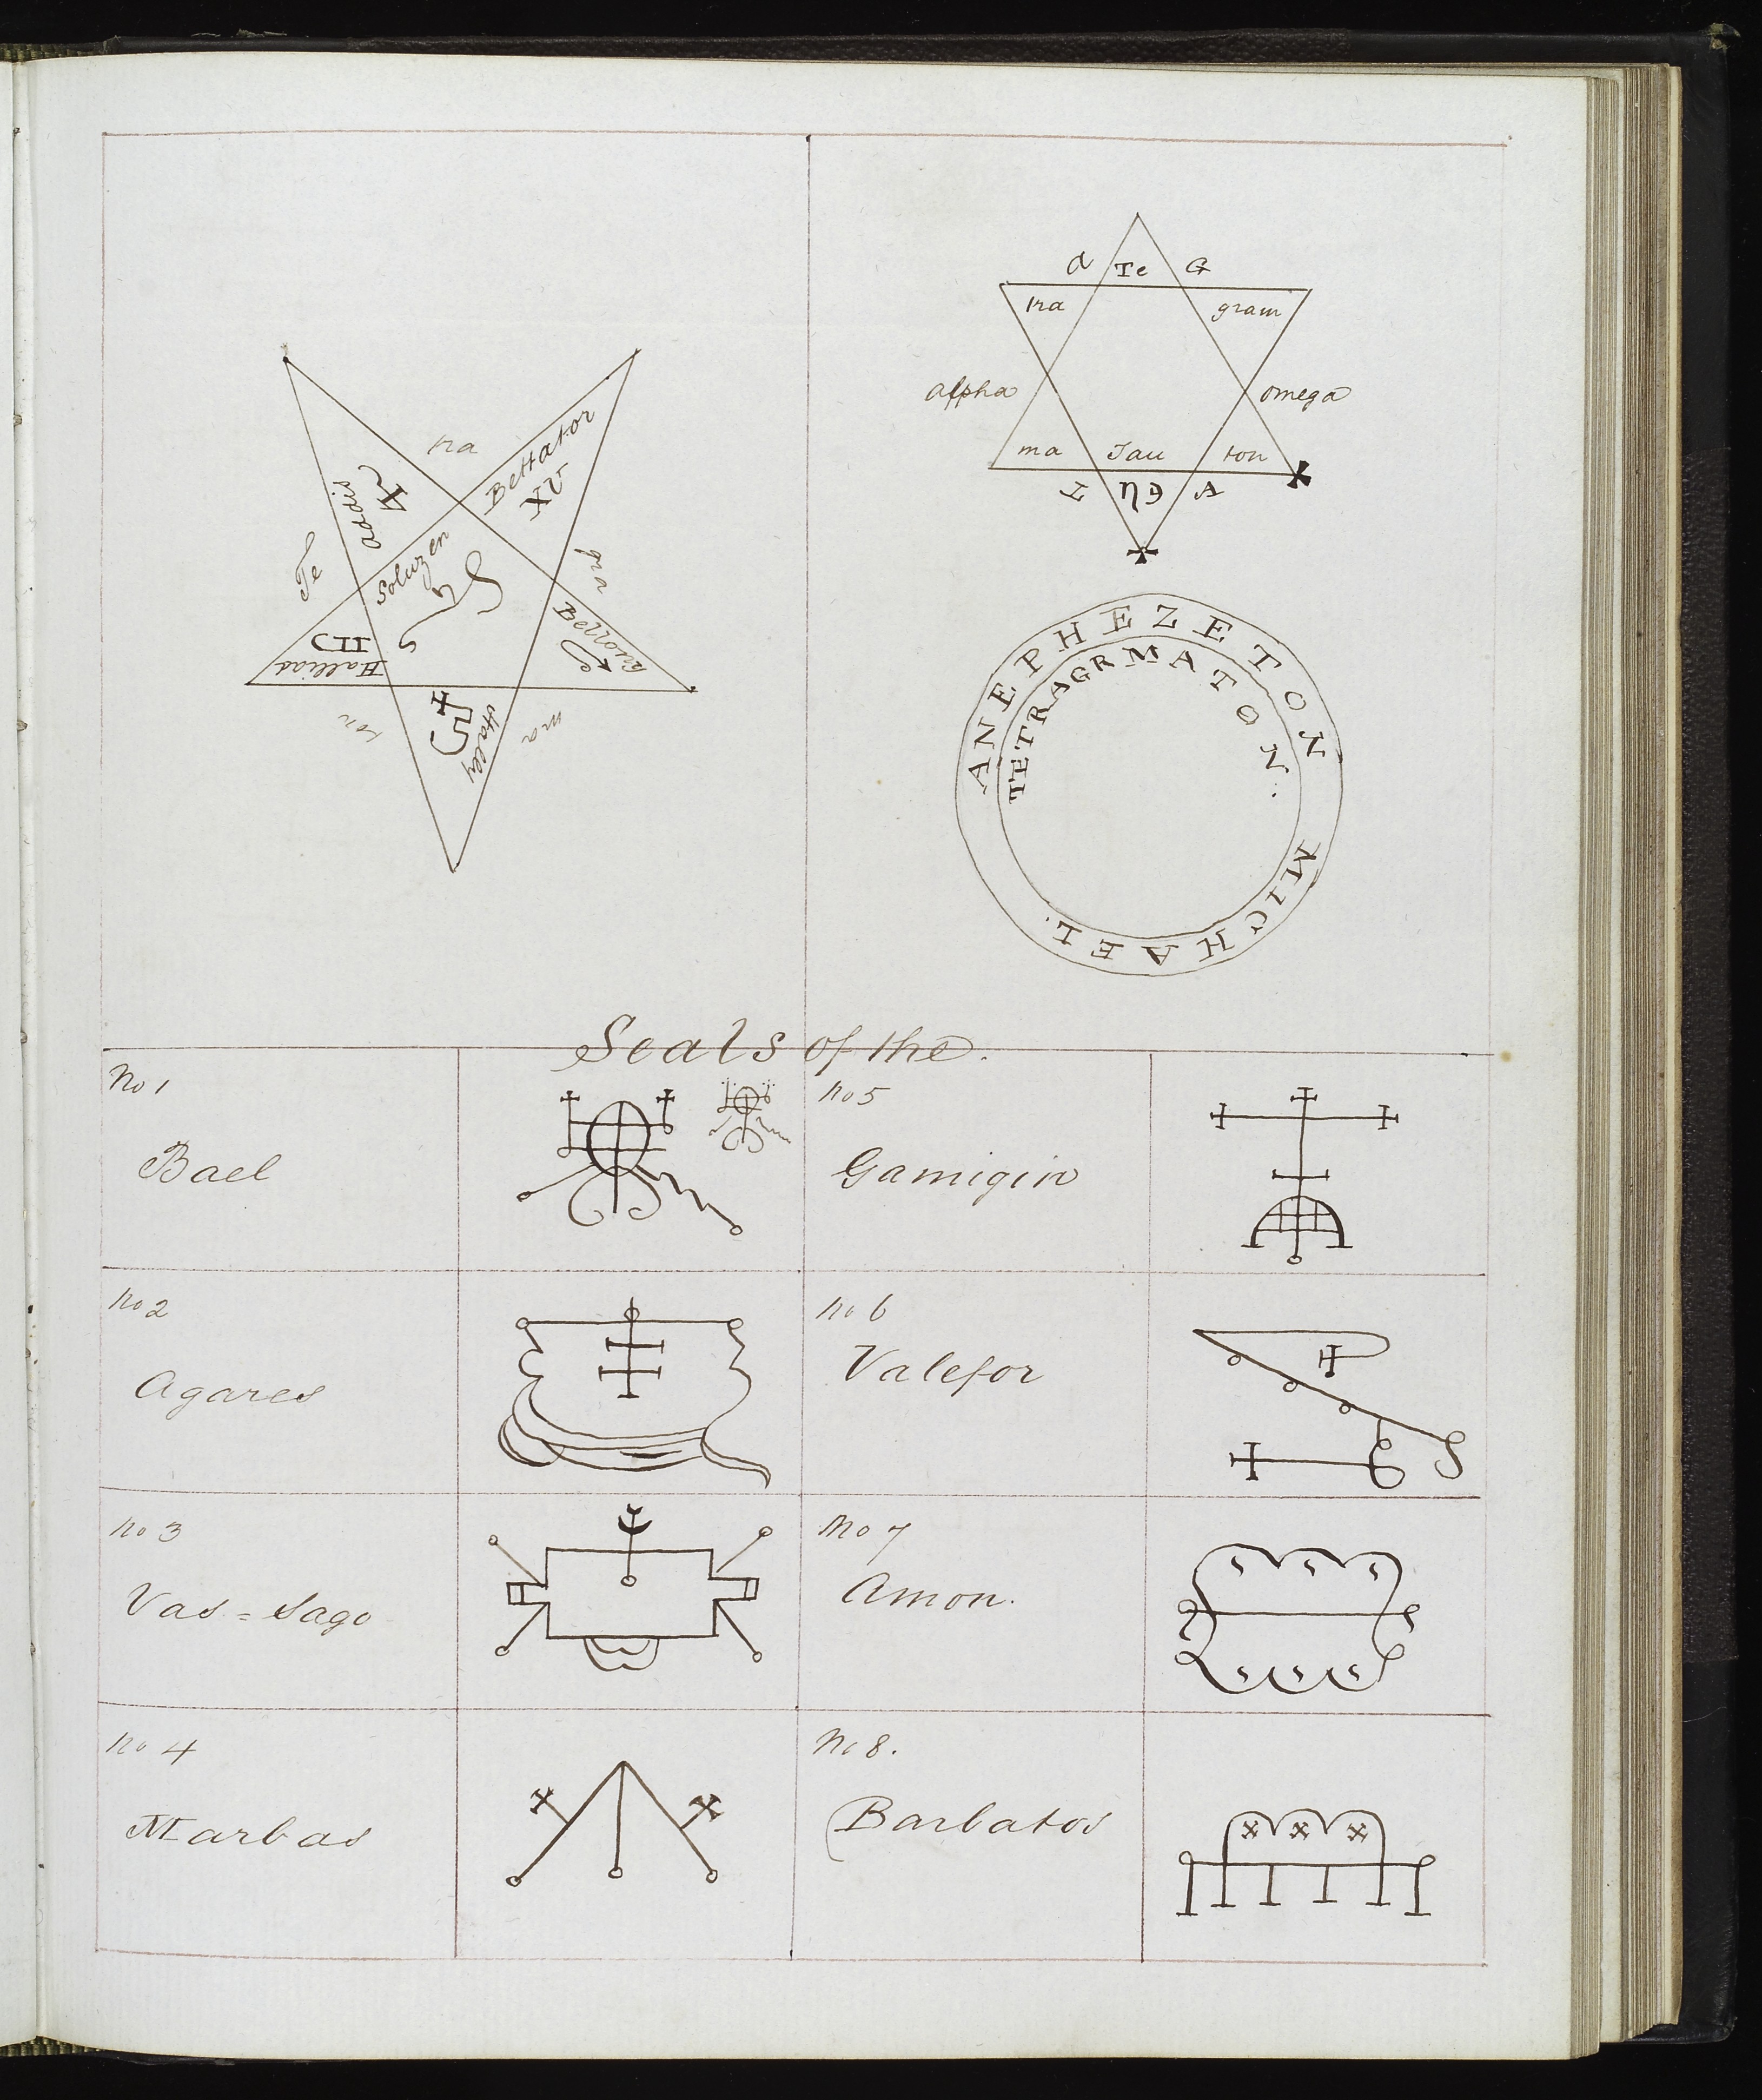 Te
tra
gra
ma
ton
addis
Bellator
XV
Soluzen
Bellony
Halliad
Hally
A Te G
tra gram
alpha omega
ma Tau ton
L A
ANEPHEZETON MICHAEL.
TETRAGRMATON.
Seals of the.
No 1
Bael
No 5
Gamigin
No 2
Agares
No 6
Valefor
No 3
Vas = sago
No 7
Amon.
No 4
Marbas
No 8.
Barbatos